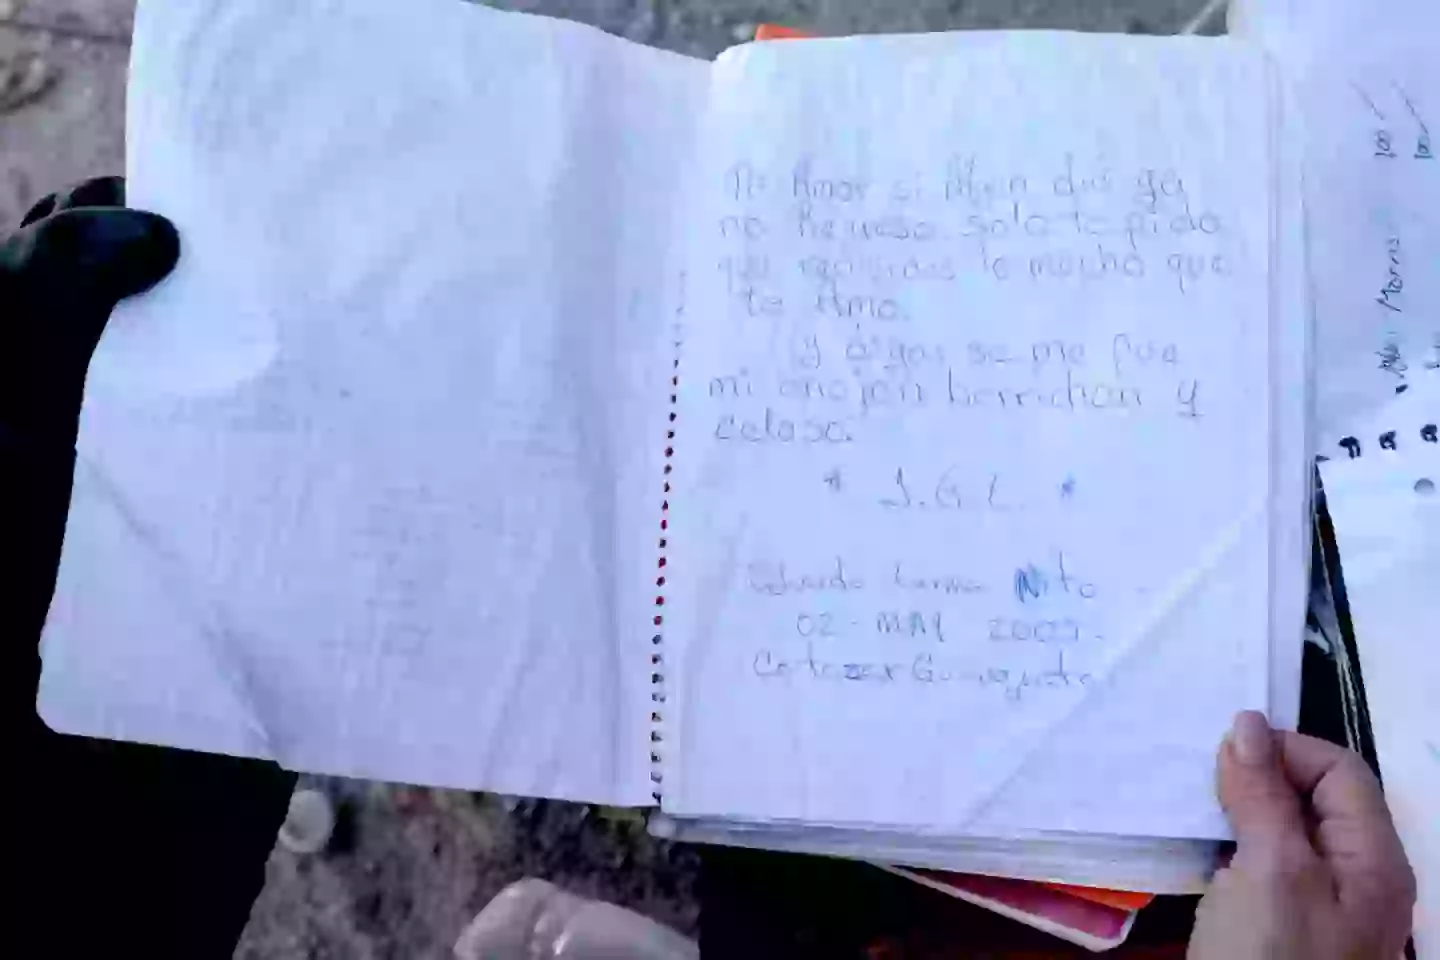 Mi Amor si Algun dia ya
no Regreso solo te pido
que recuerdes lo mucho que
te Amo.
se me fue
mi enojon berrichon y
celoso.
* J.G.L. *
Eduardo Lerma Nito
02 - MAY 2009.
Cortazar Guanajuato
100
100
Morris